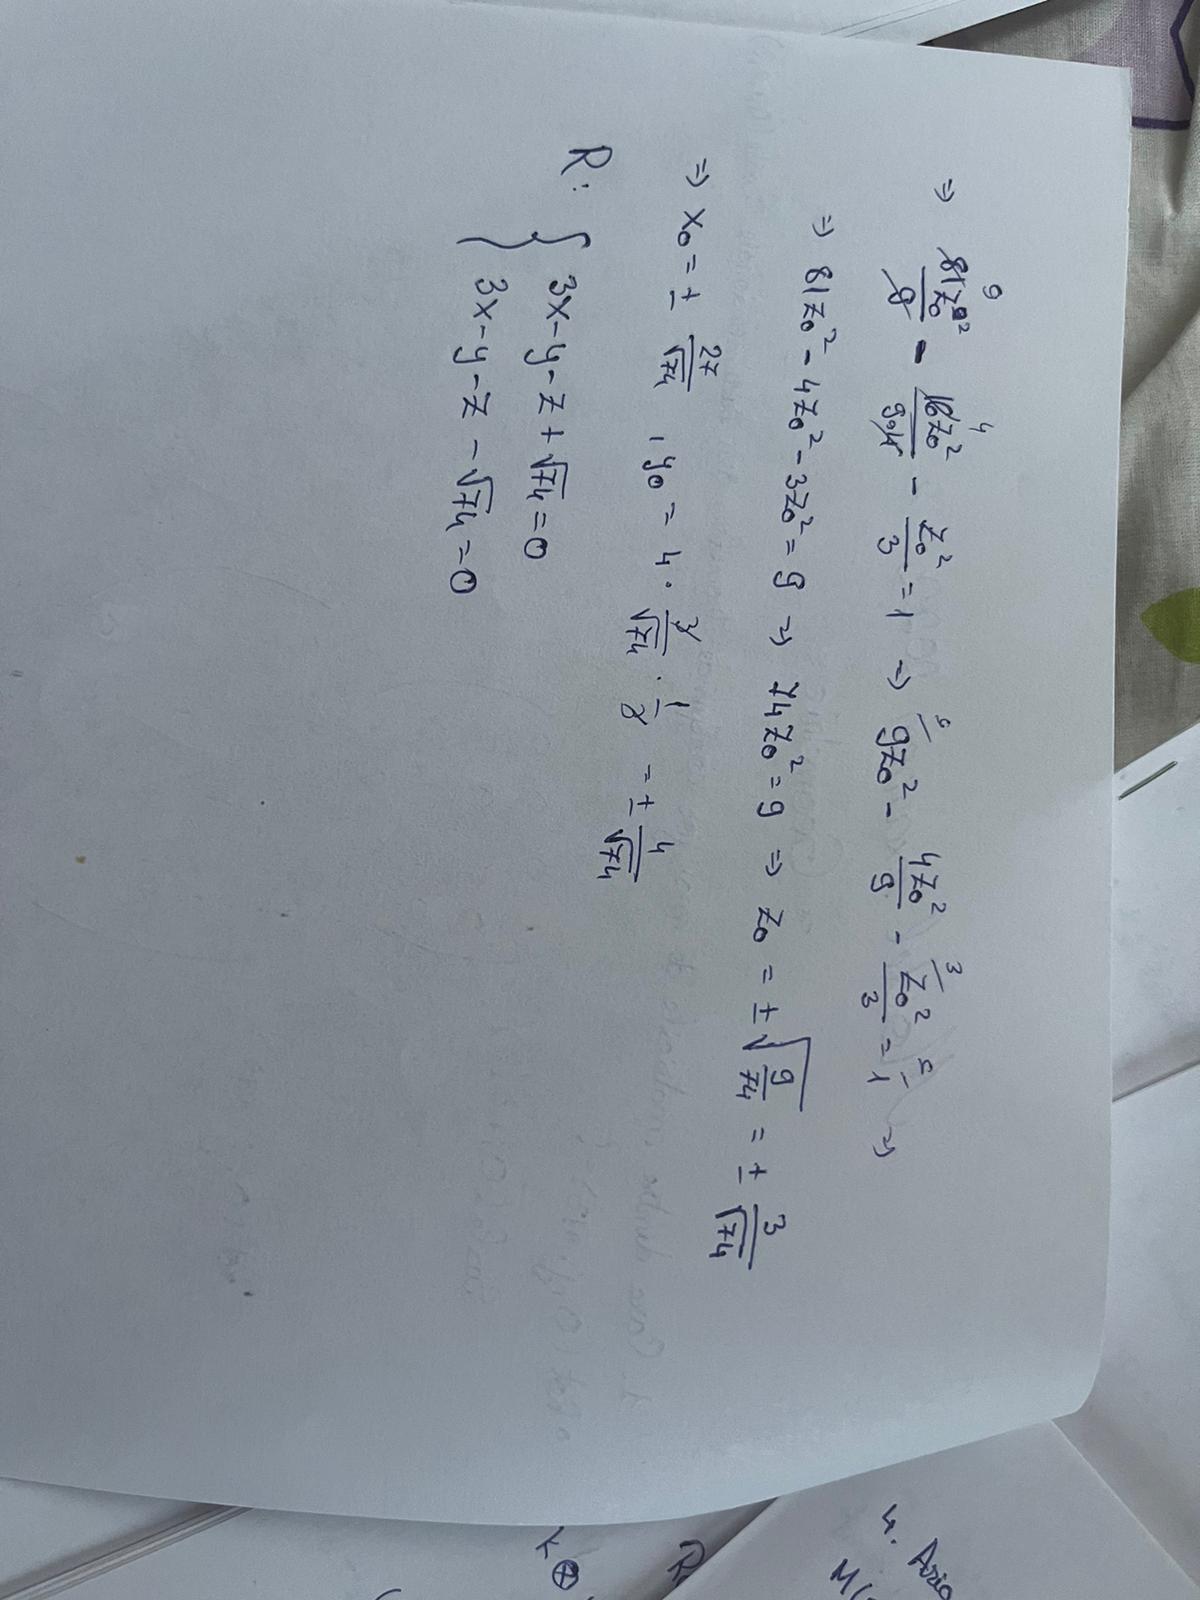 ⇒ 81z₀²/9 - 16z₀²/9·4 - z₀²/3 = 1 ⇒ 9z₀² - 4z₀²/9 - z₀²/3 = 1 ⇒
⇒ 81z₀² - 4z₀² - 3z₀² = 9 ⇒ 74z₀² = 9 ⇒ z₀ = ± √(9/74) = ± 3/√74
⇒ x₀ = ± 27/√74 , y₀ = 4 · 3/√74 · 1/3 = ± 4/√74
R: { 3x - y - z + √74 = 0
3x - y - z - √74 = 0
4.
M(